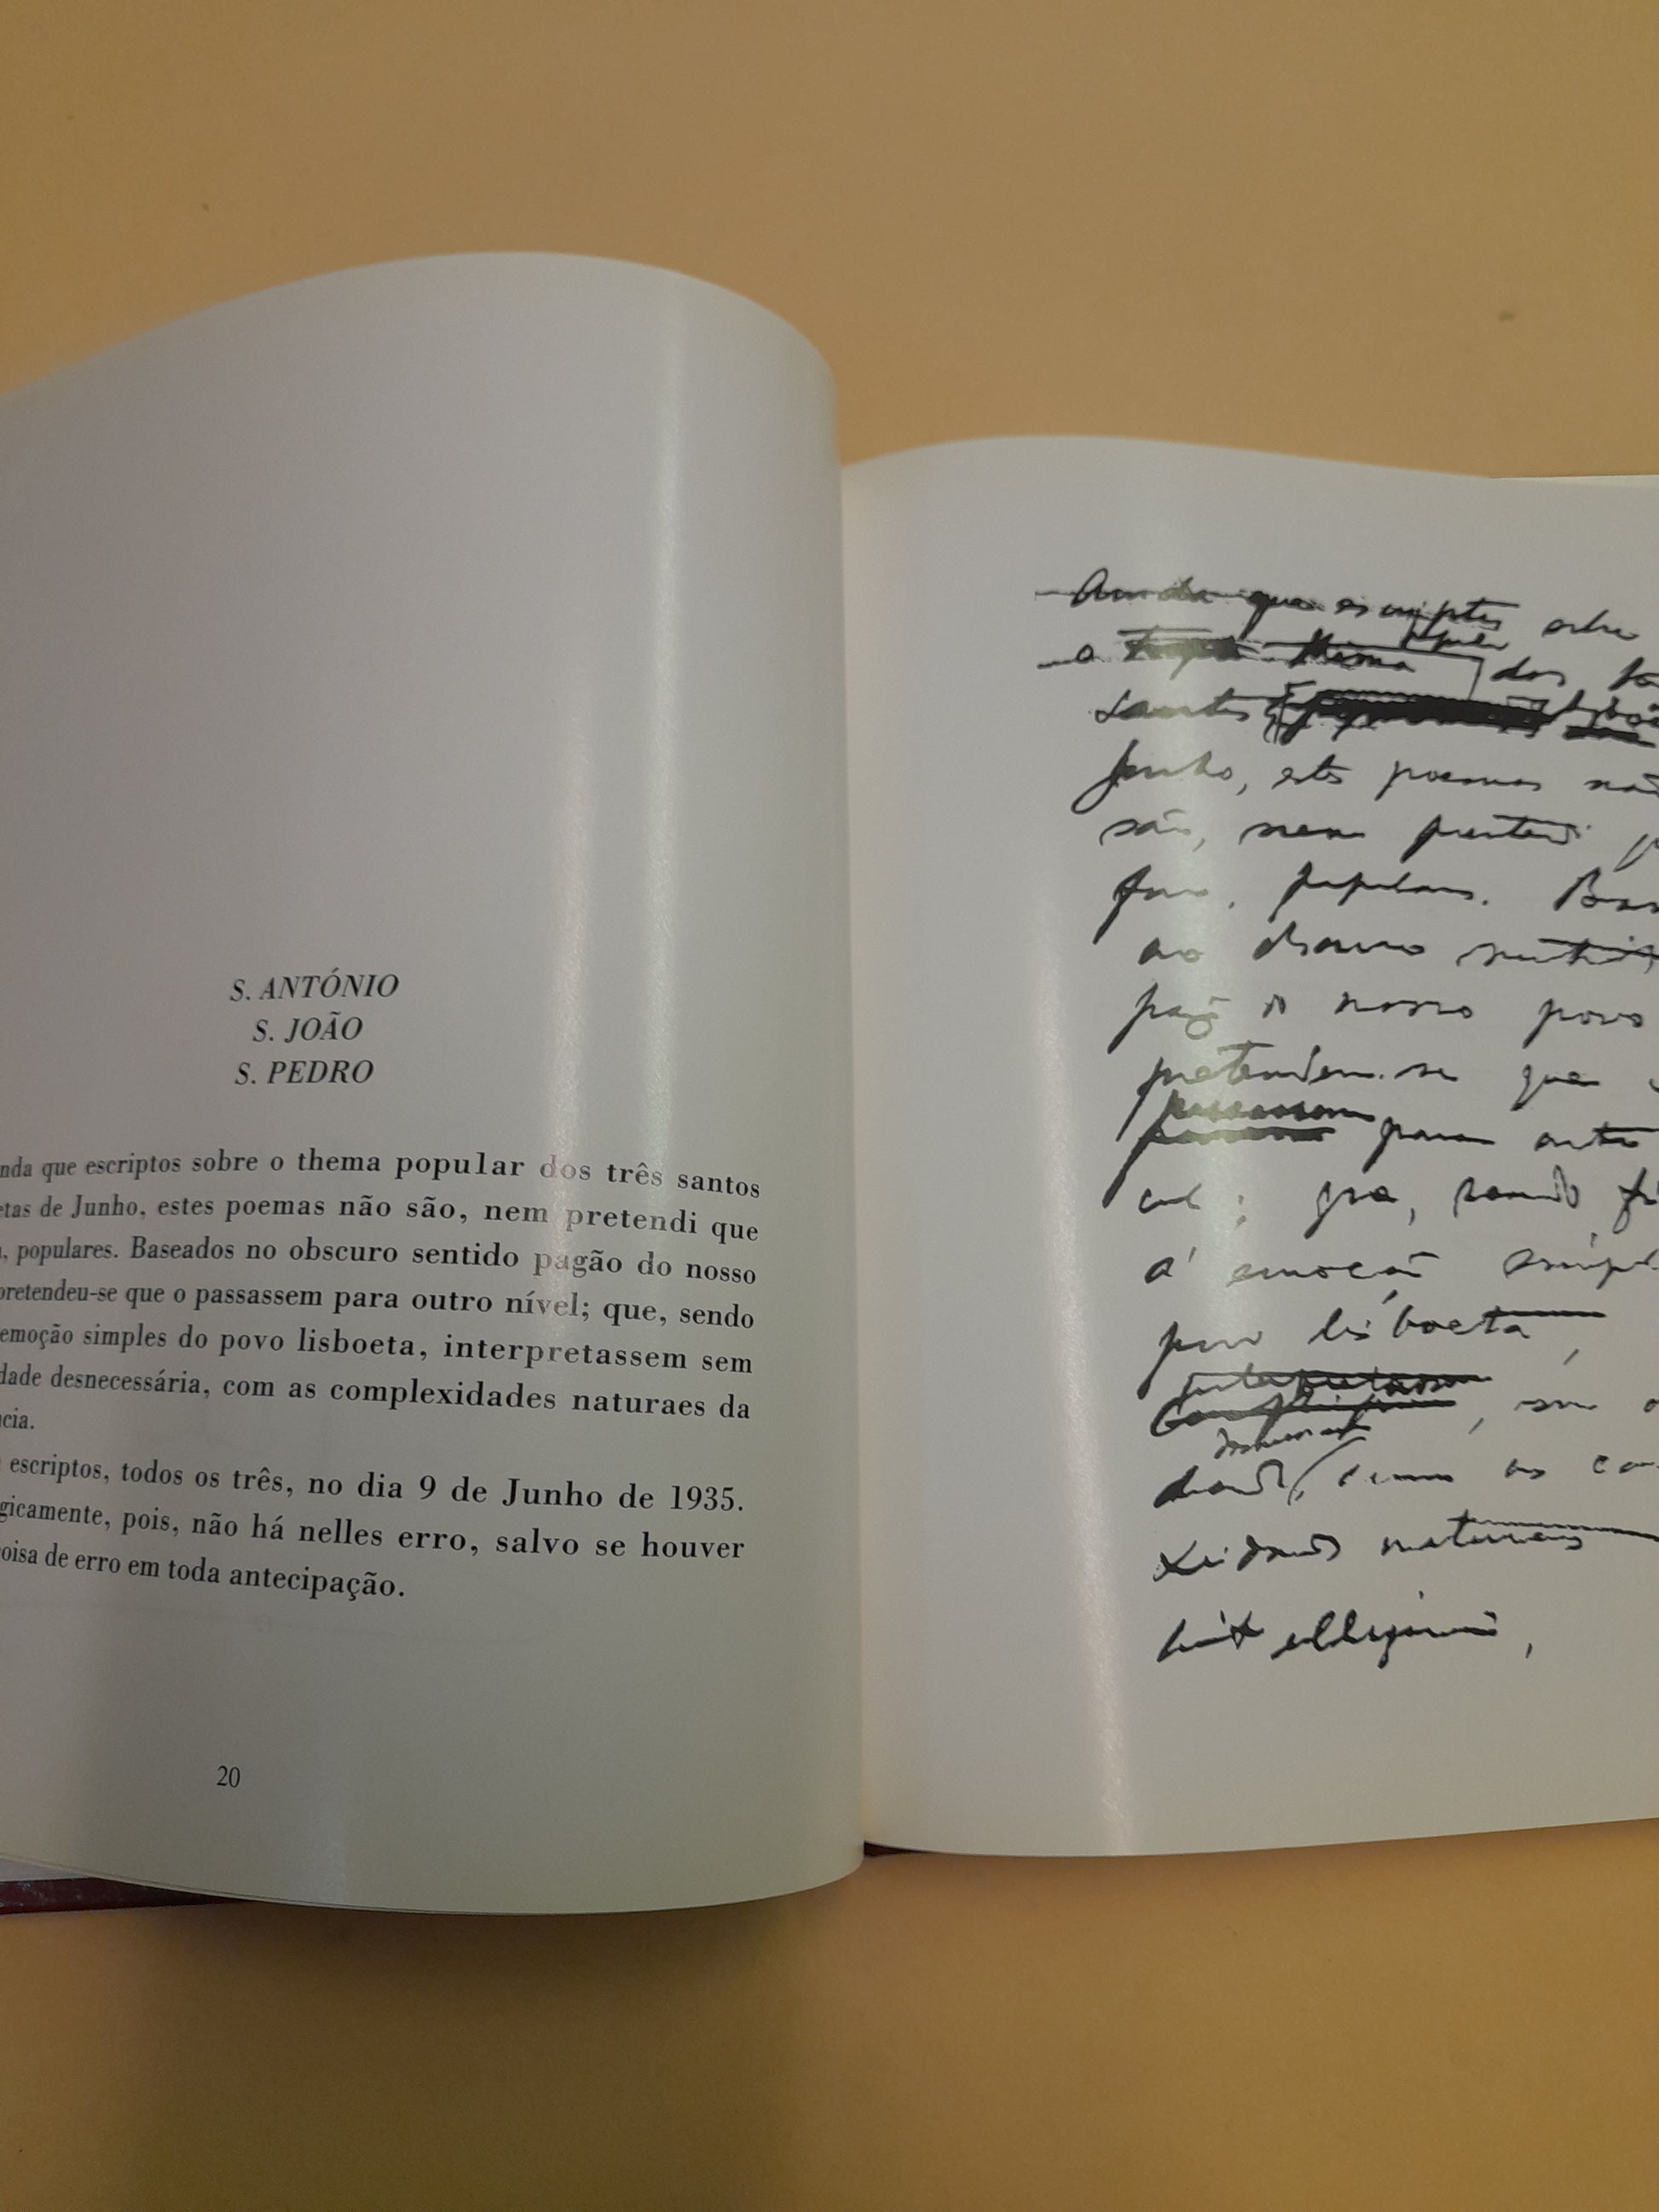 S. ANTÓNIO
S. JOÃO
S. PEDRO
nda que escriptos sobre o thema popular dos três santos
etas de Junho, estes poemas não são, nem pretendi que
, populares. Baseados no obscuro sentido pagão do nosso
pretendeu-se que o passassem para outro nível; que, sendo
emoção simples do povo lisboeta, interpretassem sem
dade desnecessária, com as complexidades naturaes da
cia.
escriptos, todos os três, no dia 9 de Junho de 1935.
gicamente, pois, não há nelles erro, salvo se houver
oisa de erro em toda antecipação.
20
Ainda que escriptos sobre
o thema popular dos
santos
Junho, estes poemas não
são, nem pretendi
populares.
ao obscuro sentido
pagão do nosso povo
pretendeu-se que
passassem para outro
que, sendo
á emoção simpl
povo lisboeta,
interpretassem, sem
dade desnecessaria, com as co
xidades naturaes
intelligencia,